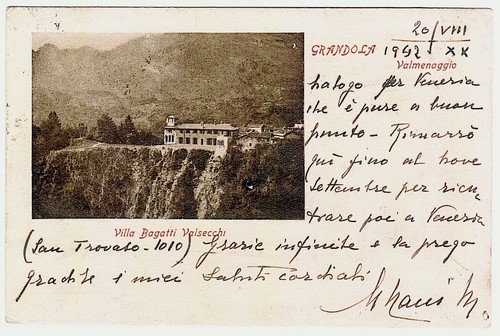 20/VIII
GRANDOLA 1942 XX
Valmenaggio
per Venezia
che è pure a buon
punto - Rimarrò
quì fino al nove
settembre per rien-
trare poi a Venezia
Villa Bagatti Valsecchi
(San Trovaso - 1010) Grazie infinite e la prego
gradite i miei saluti cordiali